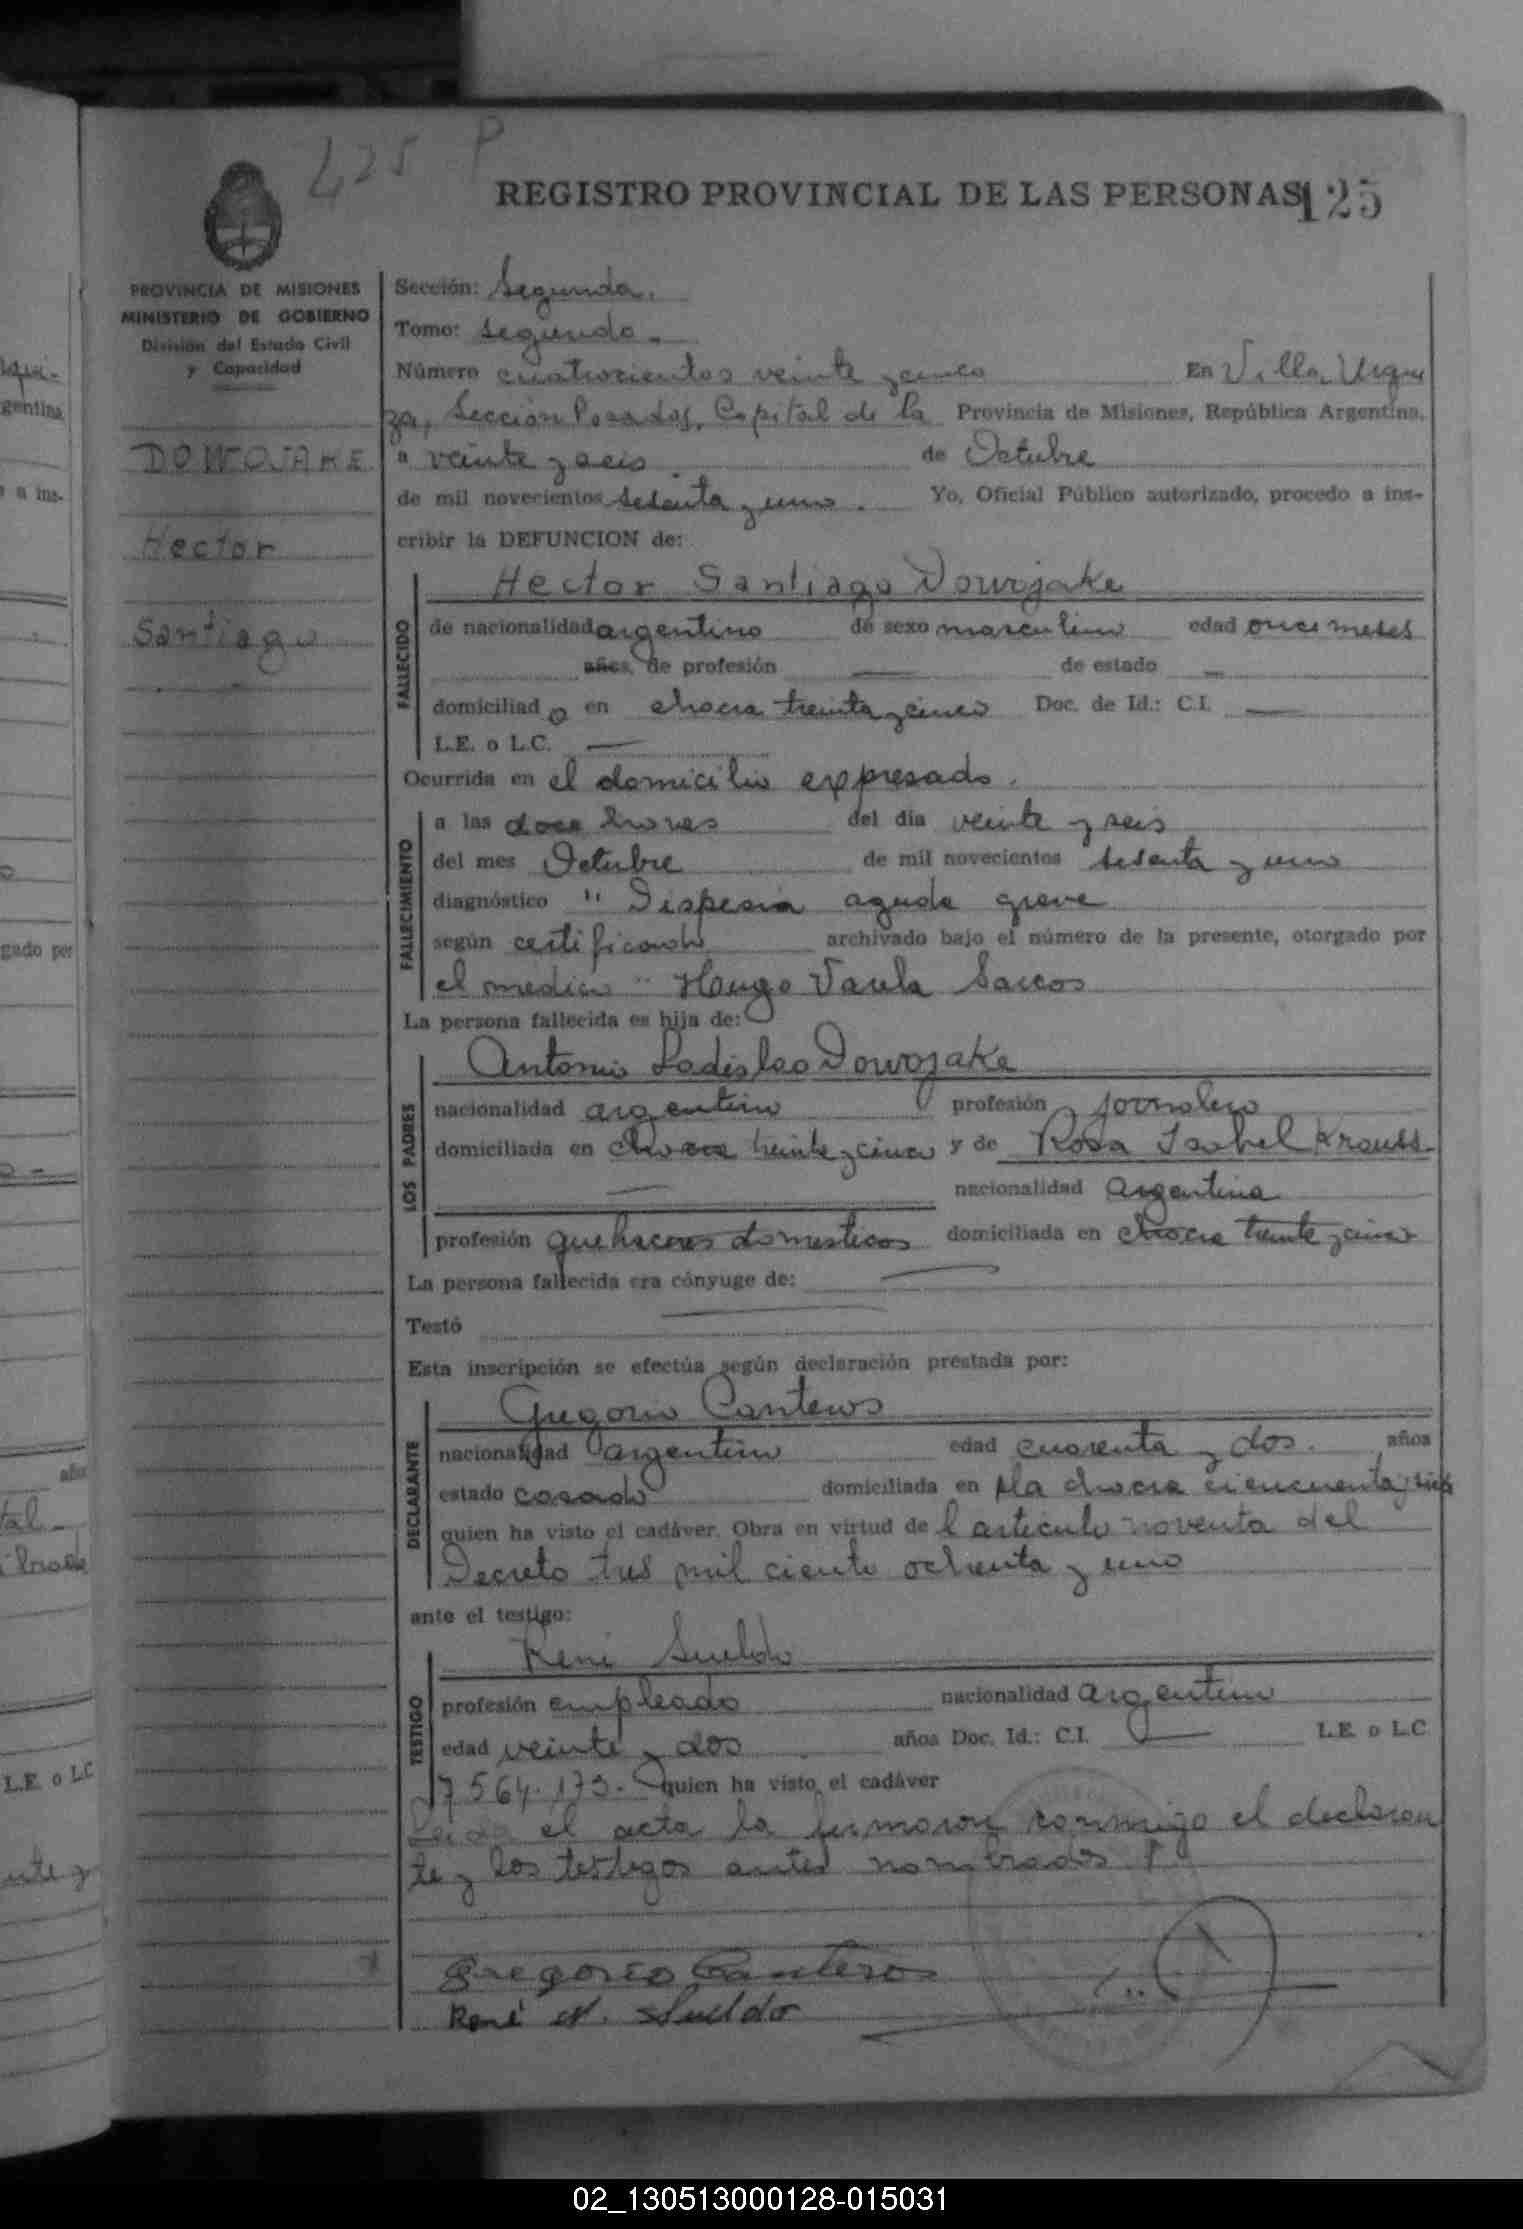 425 P
REGISTRO PROVINCIAL DE LAS PERSONAS 125
PROVINCIA DE MISIONES
MINISTERIO DE GOBIERNO
División del Estado Civil
y Capacidad
DOWOJAKE
Hector
Santiago
Sección: Segunda.
Tomo: segundo.
Número cuatrocientos veinte y cinco En Villa Urqui
za, Sección Posadas, Capital de la Provincia de Misiones, República Argentina,
a veinte y seis de Octubre
de mil novecientos sesenta y uno. Yo, Oficial Público autorizado, procedo a ins-
cribir la DEFUNCION de:
FALLECIDO
Hector Santiago Dowojake
de nacionalidad argentino de sexo masculino edad once meses
años, de profesión — de estado —
domiciliad o en chacra treinta y cinco Doc. de Id.: C.I. —
L.E. o L.C. —
Ocurrida en el domicilio expresado.
FALLECIMIENTO
a las doce horas del día veinte y seis
del mes Octubre de mil novecientos sesenta y uno
diagnóstico " Dispesia aguda grave
según certificado archivado bajo el número de la presente, otorgado por
el medico Hugo Varela
La persona fallecida es hija de:
LOS PADRES
Antonio Ladislao Dowojake
nacionalidad argentino profesión jornalero
domiciliada en chacra treinta y cinco y de Rosa Isabel Krauss.
— nacionalidad argentina
profesión quehaceres domesticos domiciliada en chacra treinta y cinco
La persona fallecida era cónyuge de: —
Testó —
Esta inscripción se efectúa según declaración prestada por:
DECLARANTE
Gregorio Canteros
nacionalidad argentino edad cuarenta y dos. años
estado casado domiciliada en la chacra cincuenta y seis
quien ha visto el cadáver. Obra en virtud de l articulo noventa del
Decreto tres mil ciento ochenta y uno
ante el testigo:
TESTIGO
René Sueldo
profesión empleado nacionalidad argentino
edad veinte y dos años Doc. Id.: C.I. — L.E. o L.C.
7564.173.- quien ha visto el cadáver
Leida el acta la firmaron conmigo el declaran
te y los testigos antes nombrados
Gregorio Canteros
René N. Sueldo
02_130513000128-015031